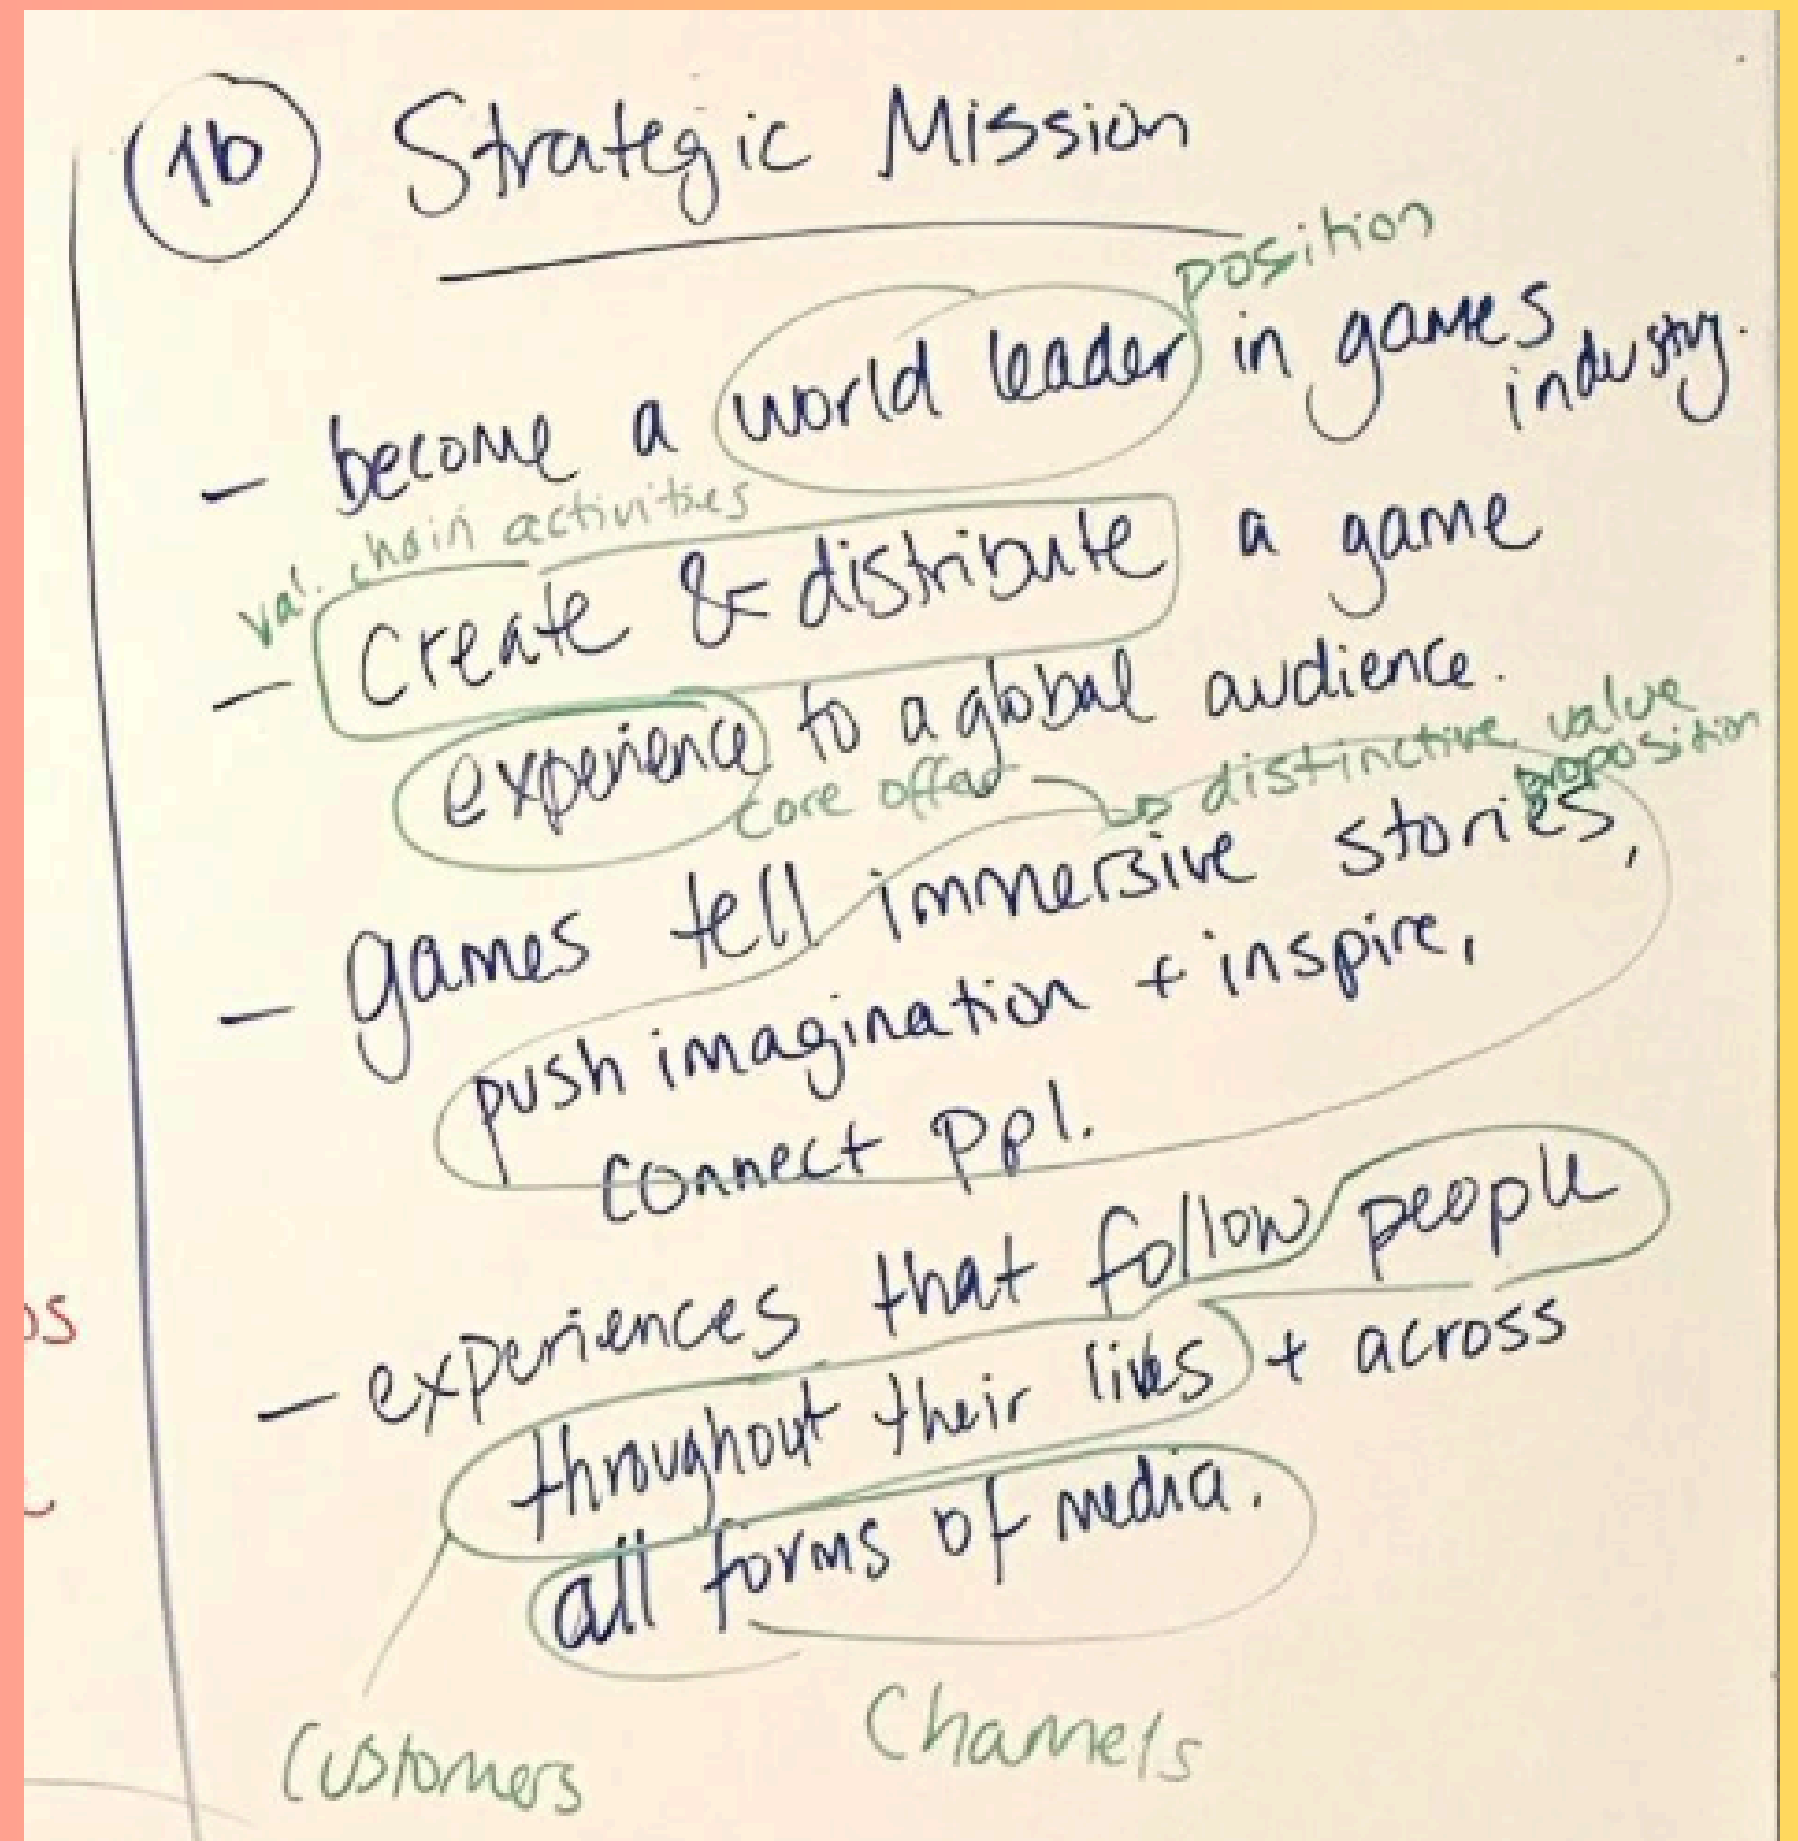 1b Strategic Mission
position
- become a world leader in games
industry.
val. chain activities
- Create & distribute a game
experience to a global audience.
core offer → distinctive value
proposition
- games tell immersive stories,
push imagination + inspire,
connect ppl.
- experiences that follow people
throughout their lives + across
all forms of media.
Customers
Channels